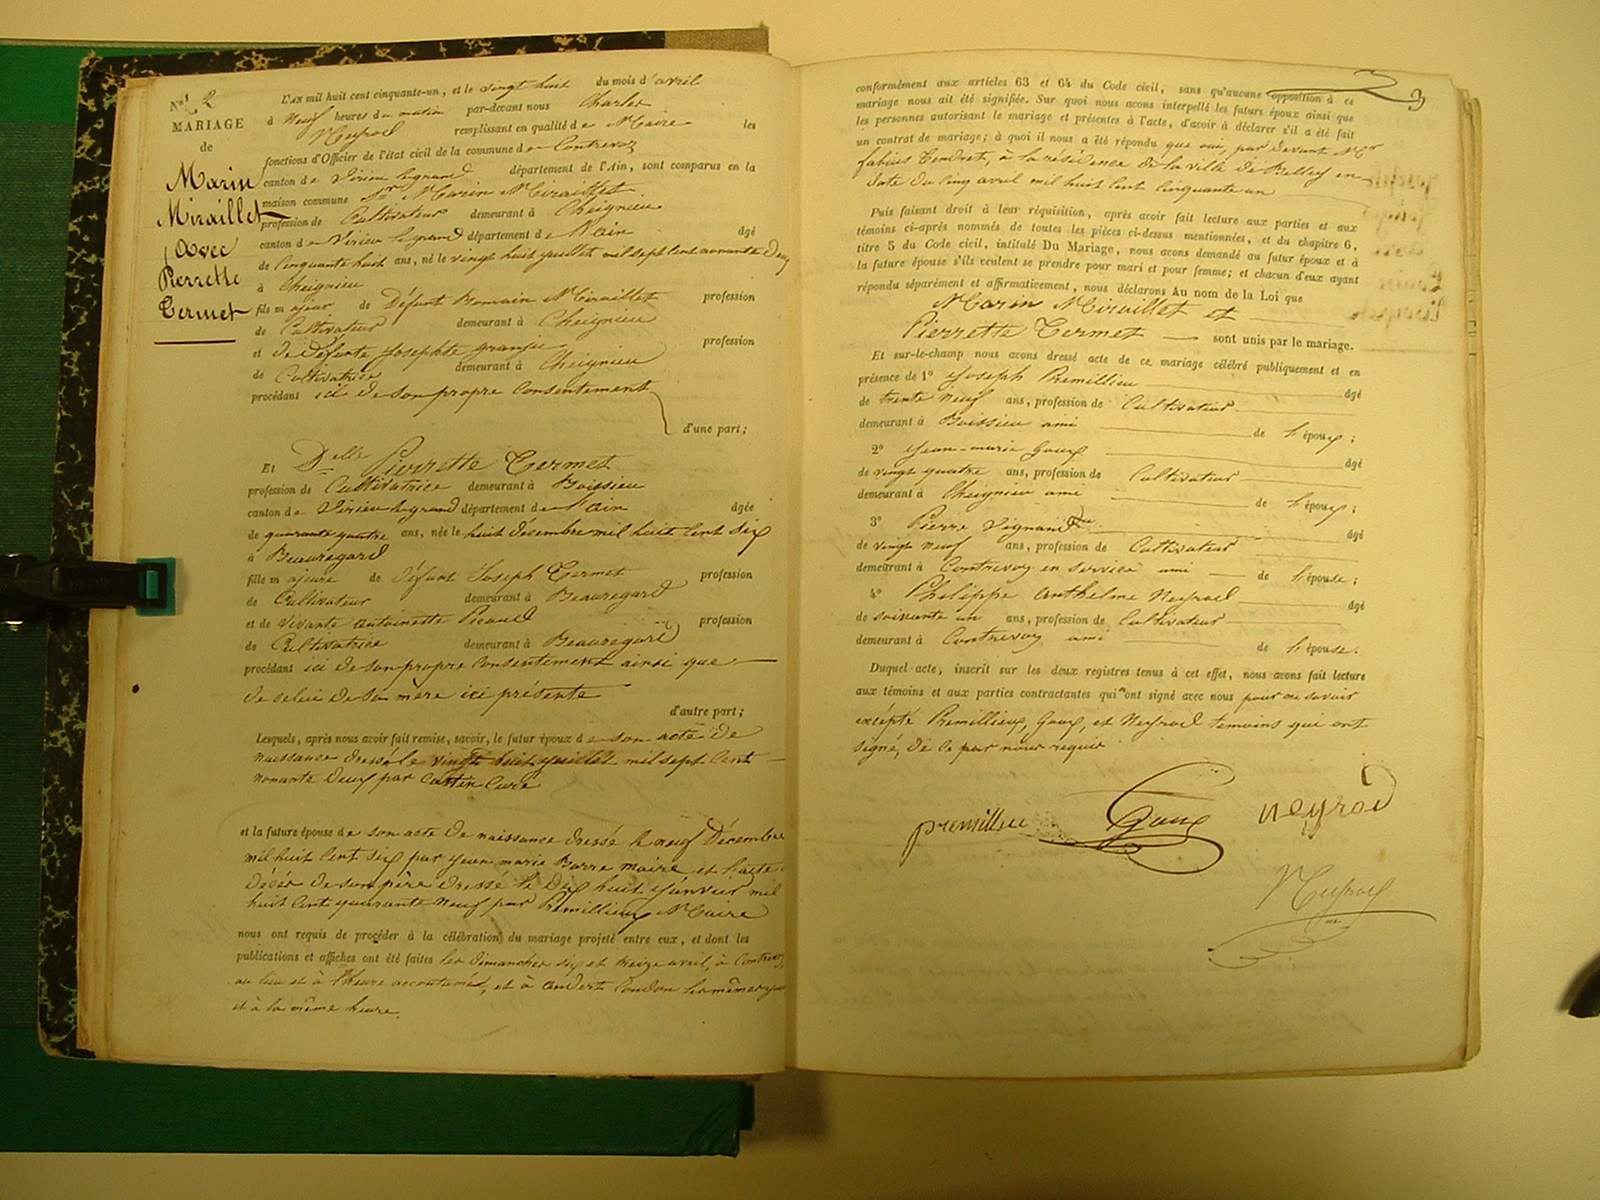 N° 2
MARIAGE
de
Marin
Miraillet
Avec
Pierrette
Termet
L'AN mil huit cent cinquante-un, et le vingt huit du mois d'avril
à Neuf heures du matin par-devant nous Charles
Neyrod remplissant en qualité de Maire les
fonctions d'Officier de l'état civil de la commune de Contrevoz
canton de Virieu legrand département de l'Ain, sont comparus en la
maison commune Sr Marin Miraillet
profession de Cultivateur demeurant à Cheignieu
canton de Virieu legrand département de l'Ain âgé
de Cinquante huit ans, né le vingt huit juillet mil sept cent nonante Deux
à Cheignieu
fils majeur de Défunt Romain Miraillet profession
de Cultivateur demeurant à Cheignieu
et de Défunte Josephte profession
de Cultivatrice demeurant à Cheignieu
procédant ici de son propre Consentement
d'une part;
Et Delle Pierrette Termet
profession de Cultivatrice demeurant à Boissieu
canton de Virieu legrand département de l'Ain âgée
de quarante quatre ans, née le huit décembre mil huit Cent six
à Beauregard
fille majeure de défunt Joseph Termet profession
de Cultivateur demeurant à Beauregard
et de vivante antoinette Picaud profession
de Cultivatrice demeurant à Beauregard
procédant ici de son propre Consentement ainsi que
de celui de sa mère ici présente
d'autre part;
Lesquels, après nous avoir fait remise, savoir, le futur époux de son acte de
naissance dressé le vingt huit juillet mil sept Cent
nonante Deux par Curé
et la future épouse de son acte de naissance dressé le neuf Décembre
mil huit Cent six par jean marie Barre maire et l'acte
décés de son père dressé le Dix huit Janvier mil
huit Cent quarante Neuf par Premillieux Maire
nous ont requis de procéder à la célébration du mariage projeté entre eux, et dont les
publications et affiches ont été faites les dimanches six et treize avril, à Contrevoz
au lieu et à l'heure accoutumés, et à andert Condon les mêmes jours
et à la même heure.
3
conformément aux articles 63 et 64 du Code civil, sans qu'aucune opposition à ce
mariage nous ait été signifiée. Sur quoi nous avons interpellé les futurs époux ainsi que
les personnes autorisant le mariage et présentes à l'acte, d'avoir à déclarer s'il a été fait
un contrat de mariage; à quoi il nous a été répondu que oui, par devant Me
fabius Tendret, à la résidence de la ville de Belley en
date du Cinq avril mil huit Cent Cinquante un
Puis faisant droit à leur réquisition, après avoir fait lecture aux parties et aux
témoins ci-après nommés de toutes les pièces ci-dessus mentionnées, et du chapitre 6,
titre 5 du Code civil, intitulé Du Mariage, nous avons demandé au futur époux et à
la future épouse s'ils veulent se prendre pour mari et pour femme; et chacun d'eux ayant
répondu séparément et affirmativement, nous déclarons Au nom de la Loi que
Marin Miraillet et
Pierrette Termet sont unis par le mariage.
Et sur-le-champ nous avons dressé acte de ce mariage célébré publiquement et en
présence de 1° Joseph Premillieu âgé
de trente Neuf ans, profession de Cultivateur
demeurant à Boissieu ami de l'époux;
2° Jean-marie Goux âgé
de vingt quatre ans, profession de Cultivateur
demeurant à Cheignieu ami de l'époux;
3° Pierre Vignand âgé
de vingt neuf ans, profession de Cultivateur
demeurant à Contrevoz en service ami de l'épouse;
4° Philippe anthelme Neyrod âgé
de soixante un ans, profession de Cultivateur
demeurant à Contrevoz ami de l'épouse.
Duquel acte, inscrit sur les deux registres tenus à cet effet, nous avons fait lecture
aux témoins et aux parties contractantes qui n'ont signé avec nous pour ne savoir
excépté Premillieux, Goux, et Neyrod temoins qui ont
signé, de ce par nous requis
premillieu Goux neyrod
Neyrod